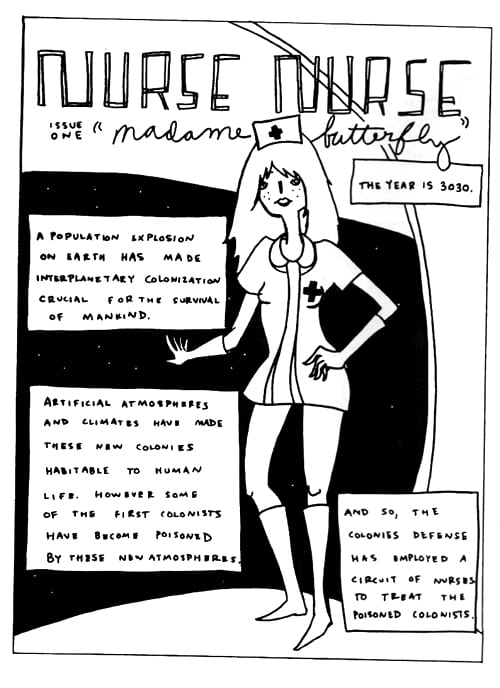 NURSE NURSE
ISSUE ONE "madame butterfly"
THE YEAR IS 3030.
A POPULATION EXPLOSION
ON EARTH HAS MADE
INTERPLANETARY COLONIZATION
CRUCIAL FOR THE SURVIVAL
OF MANKIND.
ARTIFICIAL ATMOSPHERES
AND CLIMATES HAVE MADE
THESE NEW COLONIES
HABITABLE TO HUMAN
LIFE. HOWEVER SOME
OF THE FIRST COLONISTS
HAVE BECOME POISONED
BY THESE NEW ATMOSPHERES.
AND SO, THE
COLONIES DEFENSE
HAS EMPLOYED A
CIRCUIT OF NURSES
TO TREAT THE
POISONED COLONISTS.